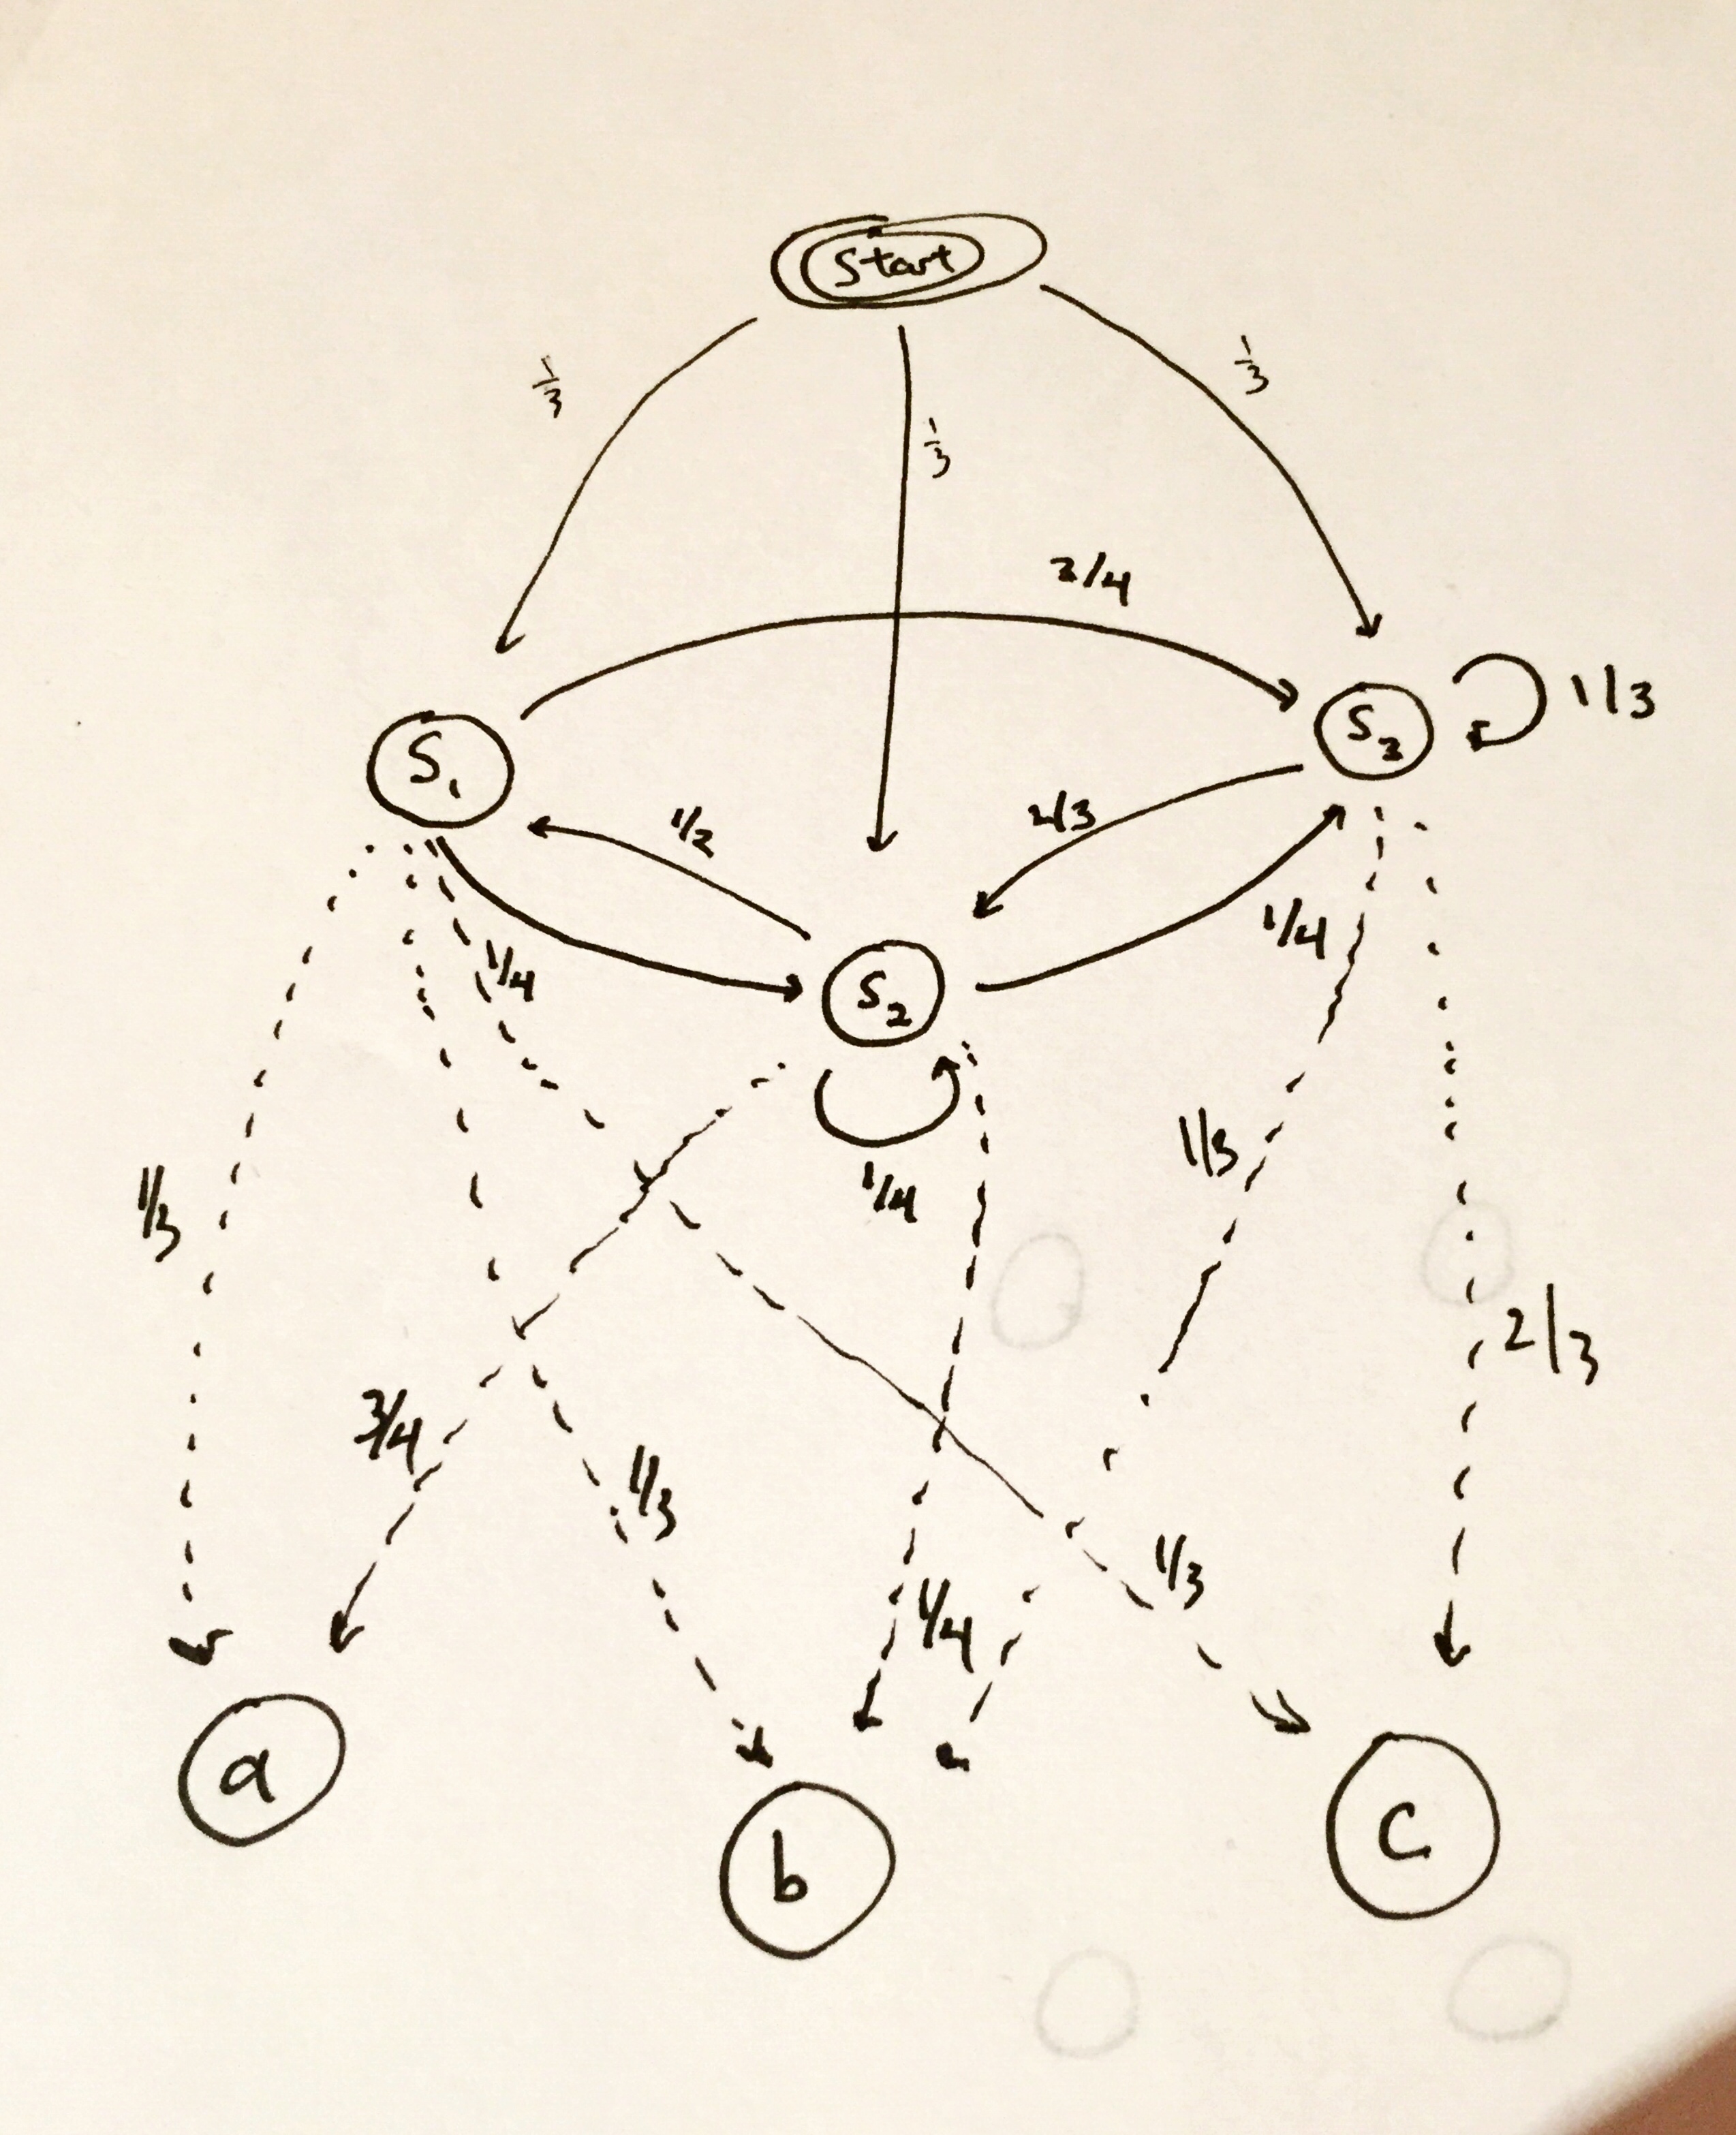 Start
1/3
1/3
1/3
3/4
S1
S3
1/3
1/2
2/3
1/4
S2
1/4
1/4
1/3
1/3
2/3
3/4
1/3
1/3
1/4
a
b
c